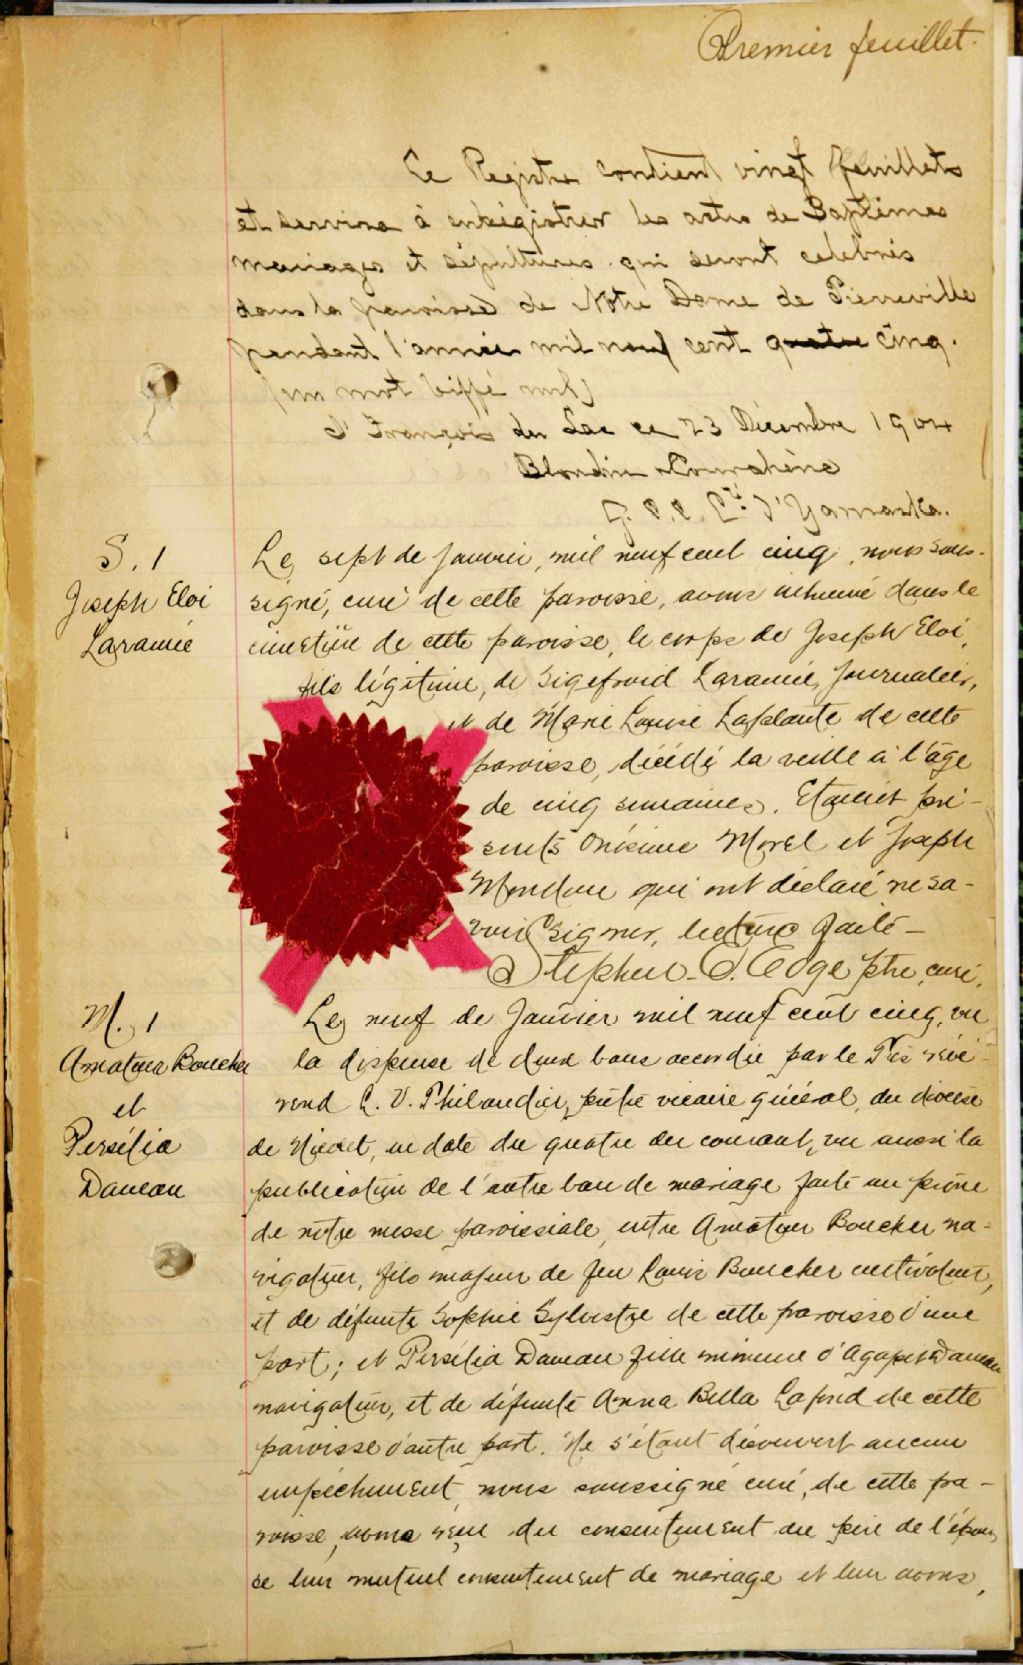 Premier feuillet.
Ce Registre contient vingt feuillets
et servira à enrégistrer les actes de Baptêmes
mariages et sépultures qui seront celebrés
dans la paroisse de Notre Dame de Pierreville
pendant l'année mil neuf cent quatre cinq.
(un mot biffé nul)
St François du Lac ce 23 Décembre 1904
Blondin
Yamaska.
S. 1
Joseph Eloi
Laramée
Le sept de Janvier, mil neuf cent cinq, nous sous-
signé, curé de cette paroisse, avons inhumé dans le
cimetière de cette paroisse, le corps de Joseph Eloi,
fils légitime, de Sigefroid Laramée, Journalier,
et de Marie Louise Laplante de cette
paroisse, décédé la veille à l'âge
de cinq semaines. Etaient pré-
sents Onésime Morel et Joseph
qui ont déclaré ne sa-
voir signer, lecture faite -
Stephen ptre, curé.
M. 1
Amateur Boucher
et
Persélia
Daneau
Le neuf de Janvier mil neuf cent cinq, vu
la dispense de deux bans accordée par le Très révé-
rend prêtre vicaire général, du diocèse
de Nicolet, en date du quatre du courant, vu aussi la
publication de l'autre ban de mariage faite au prône
de notre messe paroissiale, entre Amateur Boucher na-
vigateur, fils majeur de feu Louis Boucher cultivateur,
et de défunte Sophie Sylvestre de cette paroisse d'une
part; et Persélia Daneau fille mineure d'Agapit Daneau
navigateur, et de défunte Anna Bella Lafond de cette
paroisse d'autre part. Ne s'étant découvert aucun
empêchement, nous soussigné curé, de cette pa-
roisse, avons reçu du consentement du père de l'épou-
se leur mutuel consentement de mariage et leur avons,